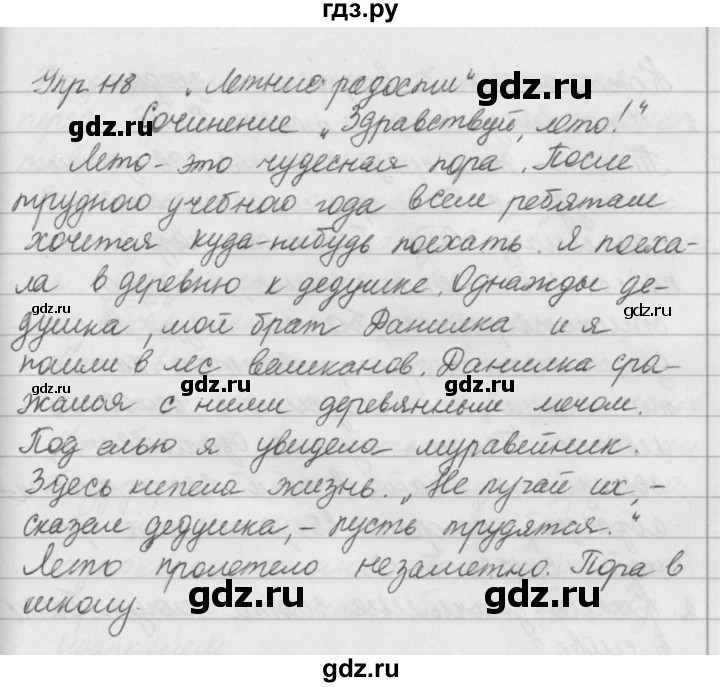 гдз.ру
Упр 118 „Летние радости“
gdz.ru
gdz.ru
Сочинение „Здравствуй, лето!“
Лето - это чудесная пора. После
трудного учебного года всем ребятам
хочется куда-нибудь поехать. Я поеха-
ла в деревню к дедушке. Однажды де-
gdz.ru
gdz.ru
душка, мой брат Данилка и я
пошли в лес великанов. Данилка сра-
gdz.ru
gdz.ru
gdz.ru
жался с ними деревянным мечом.
Под елью я увидела муравейник.
Здесь кипела жизнь. „Не пугай их, -
сказал дедушка, - пусть трудятся.“
Лето пролетело незаметно. Пора в
gdz.ru
gdz.ru
школу.
gdz.ru